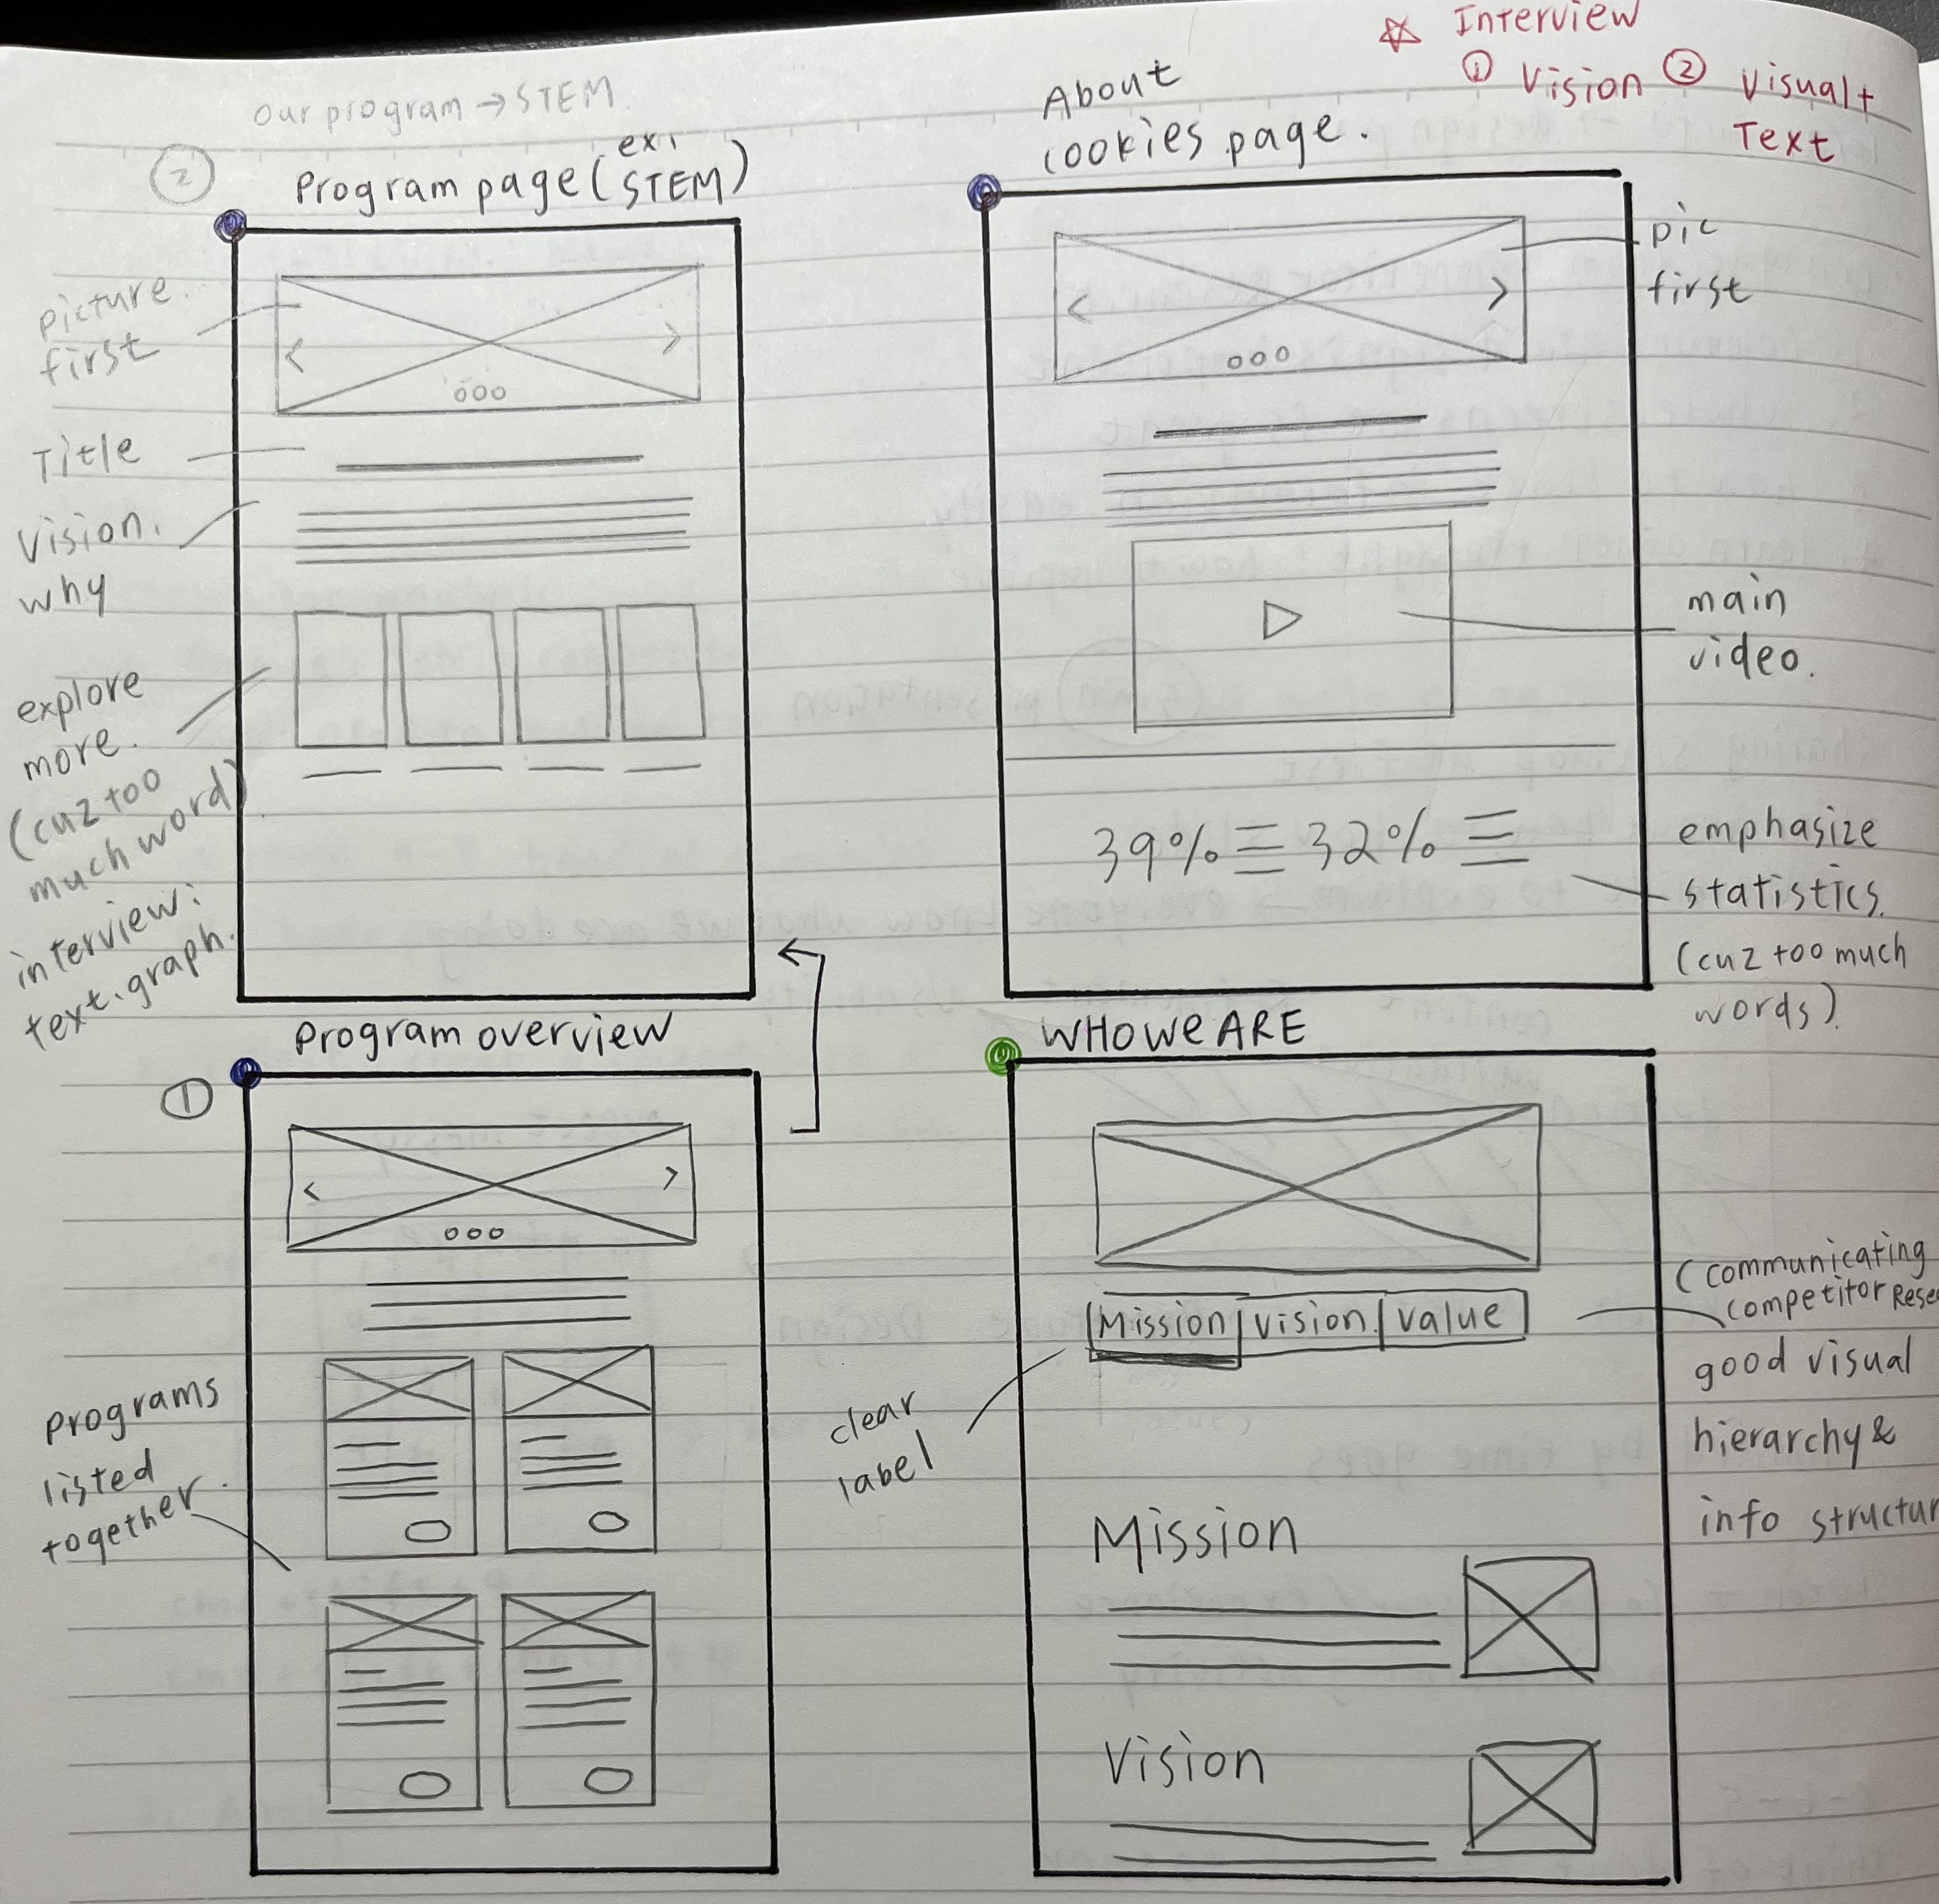 ☆ Interview
① Vision ② Visual +
Text
Our program → STEM
②
ex)
Program page (STEM)
picture
first
< >
ooo
Title
Vision.
why
explore
more.
(cuz too
much word)
interview:
text. graph.
About
cookies page.
< >
ooo
pic
first
main
video.
39% 32%
emphasize
statistics.
(cuz too much
words)
①
Program overview
< >
ooo
programs
listed
together.
WHO WE ARE
Mission | Vision | Value
clear
label
(communicating
competitor
good visual
hierarchy &
info
Mission
Vision